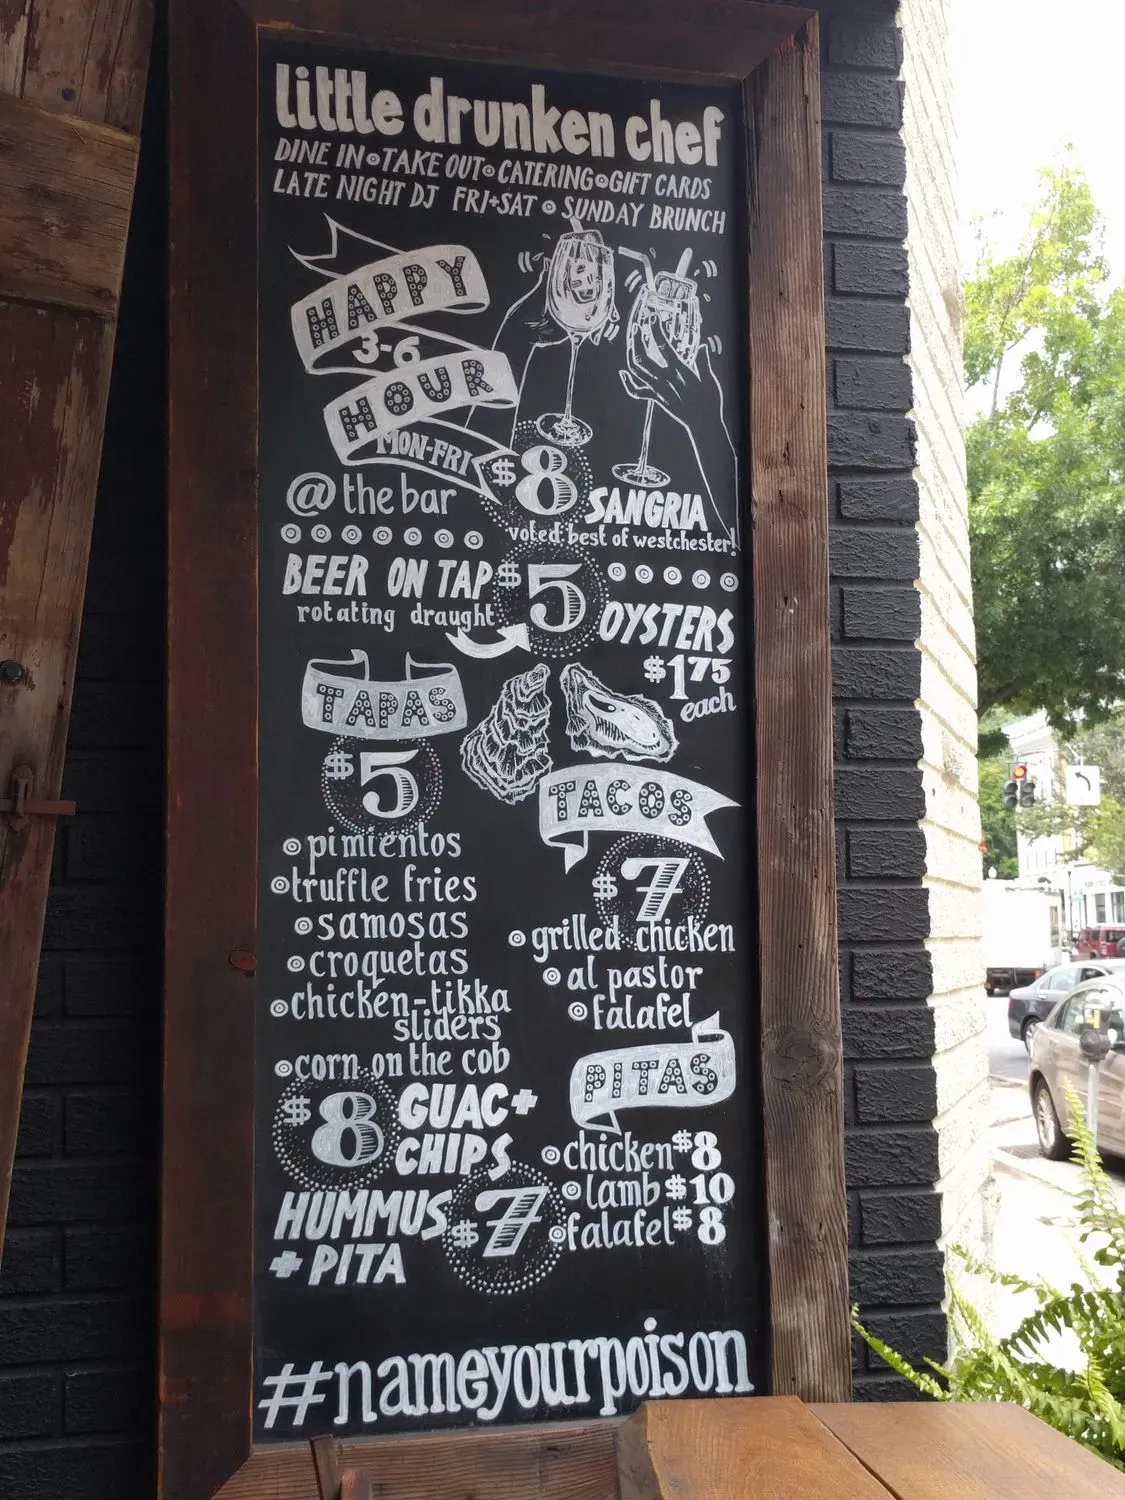 little drunken chef
DINE IN TAKE OUT CATERING GIFT CARDS
LATE NIGHT DJ FRI+SAT SUNDAY BRUNCH
HAPPY
3-6
HOUR
MON-FRI
@ the bar
$8 SANGRIA
voted best of westchester!
BEER ON TAP $5
rotating draught
OYSTERS
$1.75
each
TAPAS
$5
pimientos
truffle fries
samosas
croquetas
chicken-tikka
sliders
corn on the cob
TACOS
$7
grilled chicken
al pastor
falafel
$8 GUAC+
CHIPS
HUMMUS $7
+ PITA
PITAS
chicken $8
lamb $10
falafel $8
#nameyourpoison